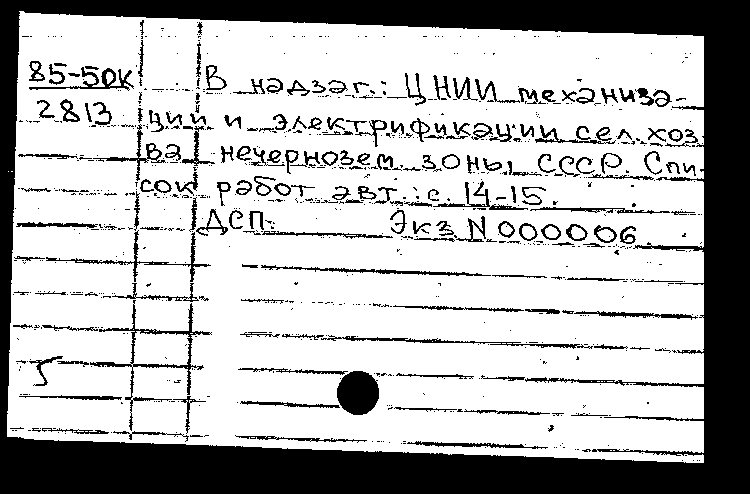 85-50к В надзаг.: ЦНИИ механиза-
2813 ции и электрификации сел. хоз-
ва нечернозем. зоны, СССР. Спи-
сок работ авт.: с. 14-15.
ДСП. Экз N 000006.
5